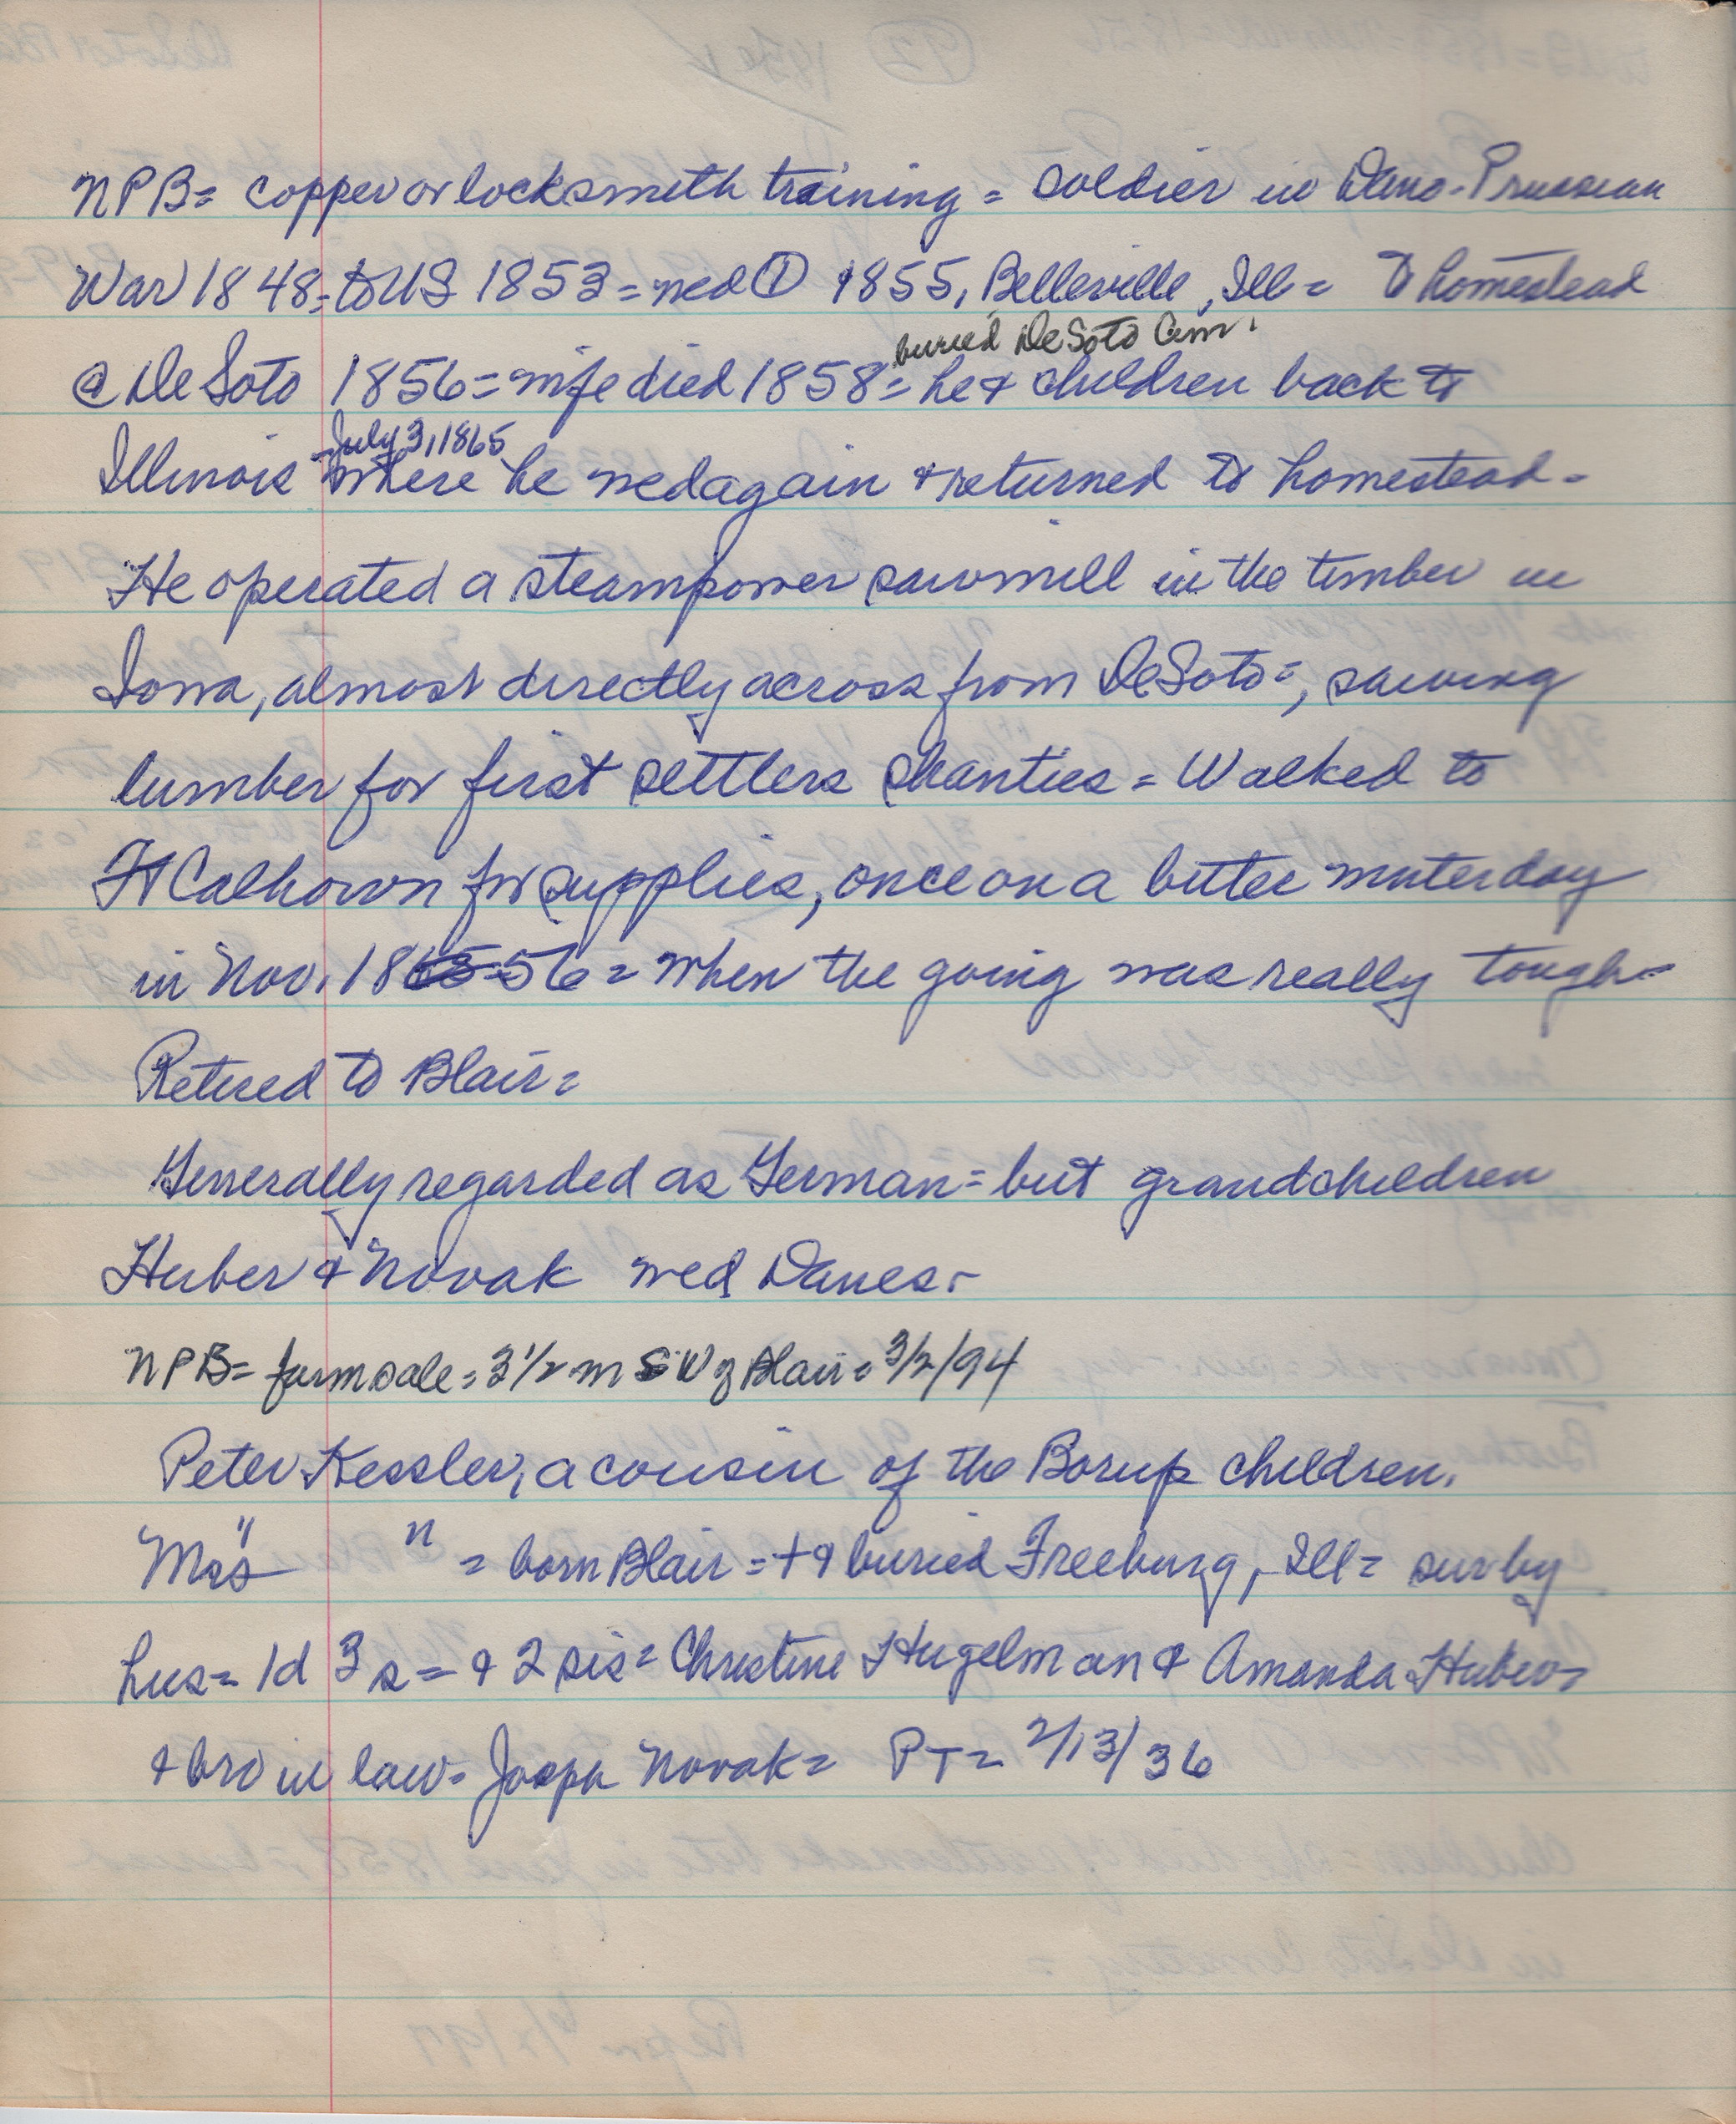 NPB= copper or locksmith training = soldier in Dano-Prussian
War 1848= to US 1853 = wed ① 1855, Belleville, Ill = To homestead
buried DeSoto Cem.
@ DeSoto 1856 = wife died 1858 = he & children back to
July 3, 1865
Illinois where he wed again & returned to homestead -
He operated a steampower sawmill in the timber in
Iowa, almost directly across from DeSoto =, sawing
lumber for first settlers shanties = Walked to
Ft Calhoun for supplies, once on a bitter winter day
in Nov. 1856 = when the going was really tough =
Retired to Blair =
Generally regarded as German = but grandchildren
Huber & Novak wed Danes -
NPB = farm sale = 3 1/2 m SW of Blair = 3/2/94
Peter Kessler, a cousin of the Borup children.
Mrs " " = born Blair = + & buried Freeburg, Ill = sur by
hus = 1d 3s = & 2 sis = Christine Hugelman & Amanda Huber =
& bro in law = Joseph Novak = PT = 2/13/36